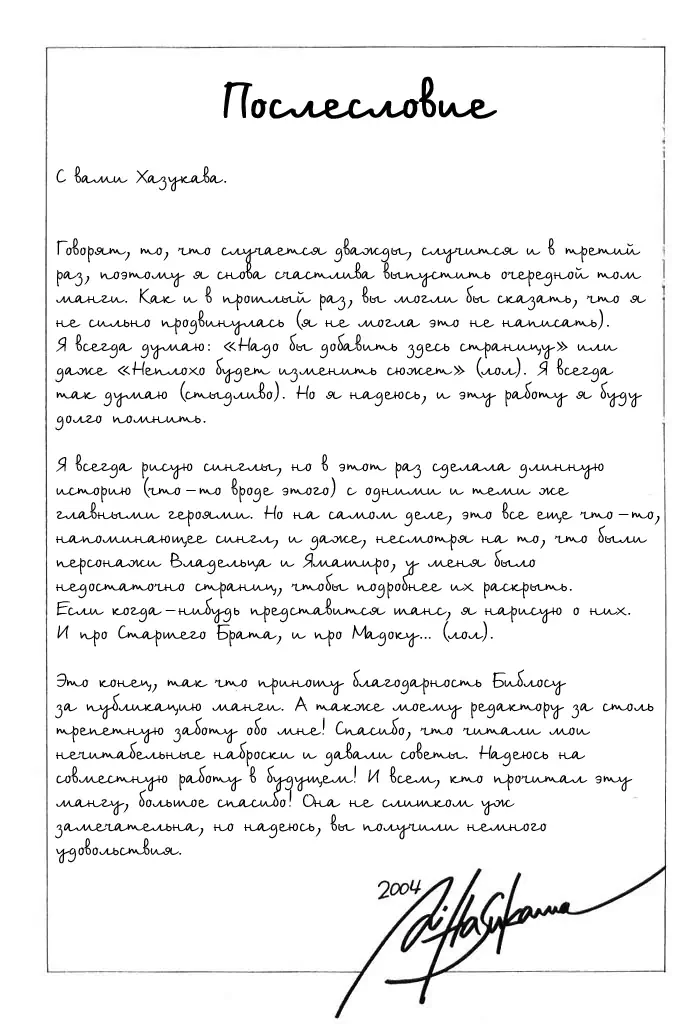 Послесловие
С вами Хазукава.
Говорят, то, что случается дважды, случится и в третий
раз, поэтому я снова счастлива выпустить очередной том
манги. Как и в прошлый раз, вы могли бы сказать, что я
не сильно продвинулась (я не могла это не написать).
Я всегда думаю: «Надо бы добавить здесь страницу» или
даже «Неплохо будет изменить сюжет» (лол). Я всегда
так думаю (стыдливо). Но я надеюсь, и эту работу я буду
долго помнить.
Я всегда рисую синглы, но в этот раз сделала длинную
историю (что-то вроде этого) с одними и теми же
главными героями. Но на самом деле, это все еще что-то,
напоминающее сингл, и даже, несмотря на то, что были
персонажи Владельца и Яматиро, у меня было
недостаточно страниц, чтобы подробнее их раскрыть.
Если когда-нибудь представится шанс, я нарисую о них.
И про Старшего Брата, и про Мадоку... (лол).
Это конец, так что приношу благодарность Библосу
за публикацию манги. А также моему редактору за столь
трепетную заботу обо мне! Спасибо, что читали мои
нечитабельные наброски и давали советы. Надеюсь на
совместную работу в будущем! И всем, кто прочитал эту
мангу, большое спасибо! Она не слишком уж
замечательна, но надеюсь, вы получили немного
удовольствия.
2004